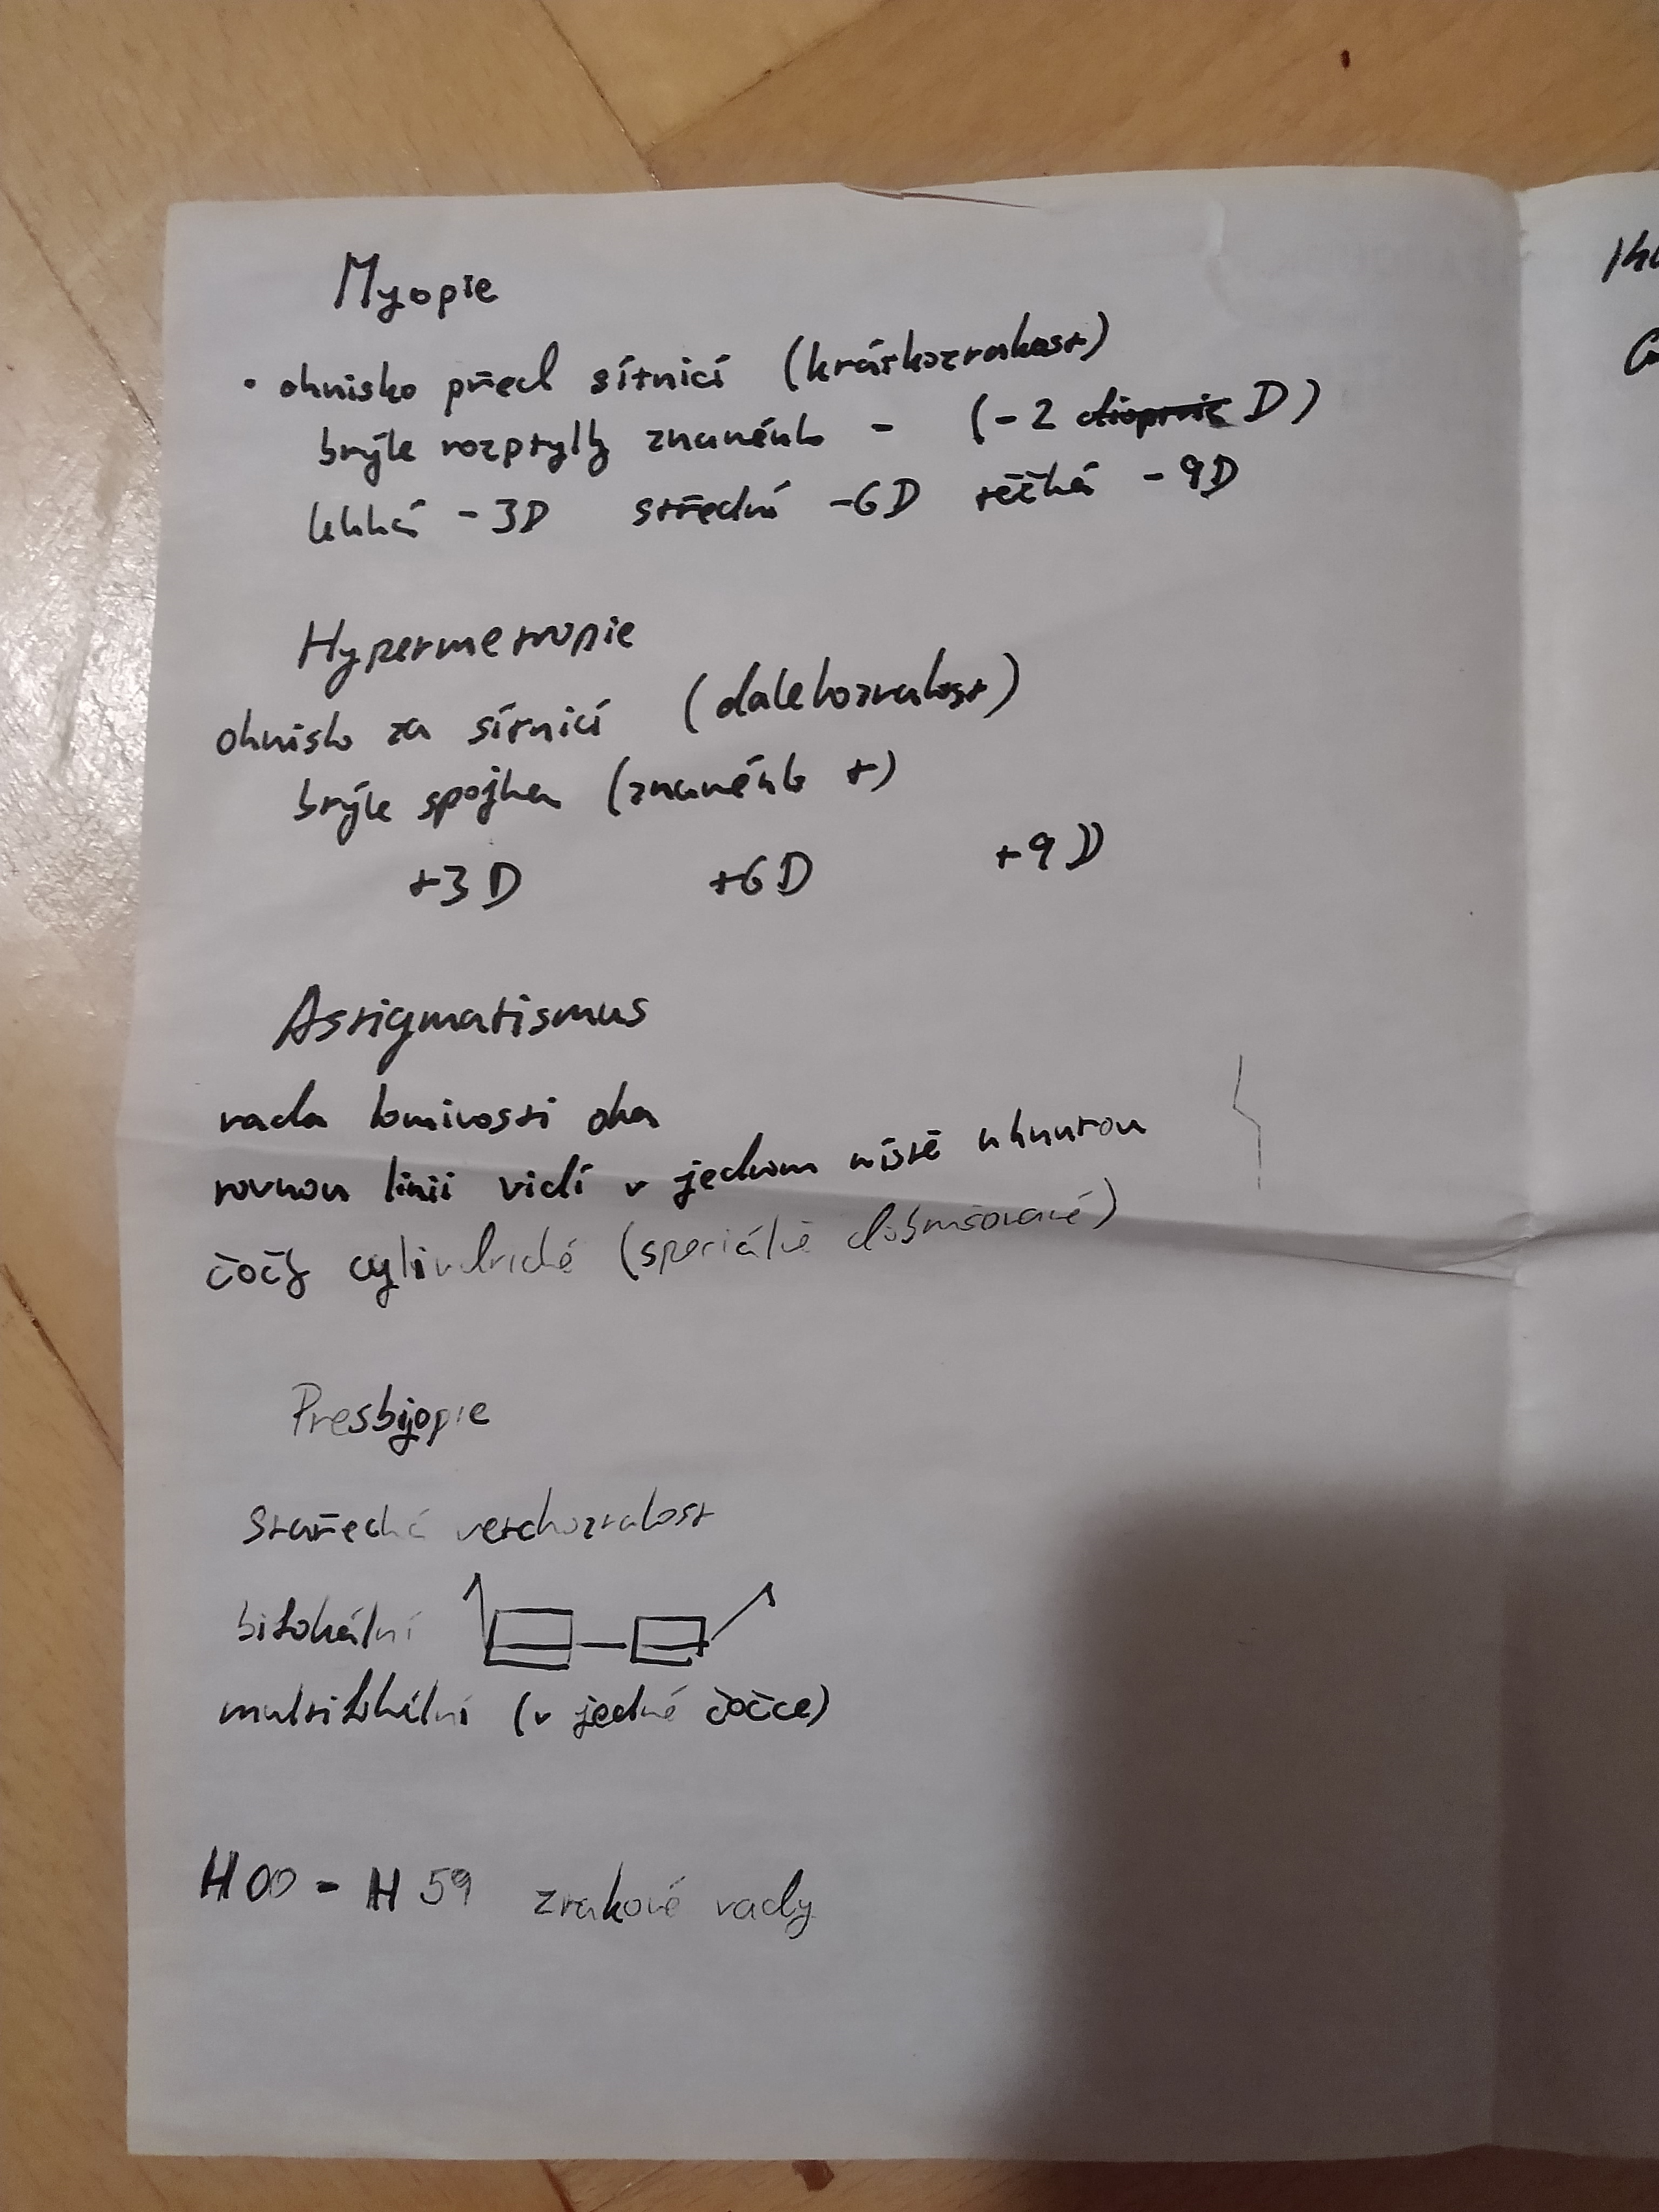 Myopie
• ohnisko před sítnicí (krátkozrakost)
brýle rozptylky znaménko - (-2 dioptrie D)
lehká -3D střední -6D těžká -9D
Hypermetropie
ohnisko za sítnicí (dalekozrakost)
brýle spojka (znaménko +)
+3D +6D +9D
Astigmatismus
vada lomivosti oka
rovnou linii vidí v jednom místě uhnutou
čočky cylindrické (speciálně zabrušované)
Presbyopie
Stařecká vetchozrakost
bifokální
multifokální (v jedné čočce)
H00 - H59 zrakové vady